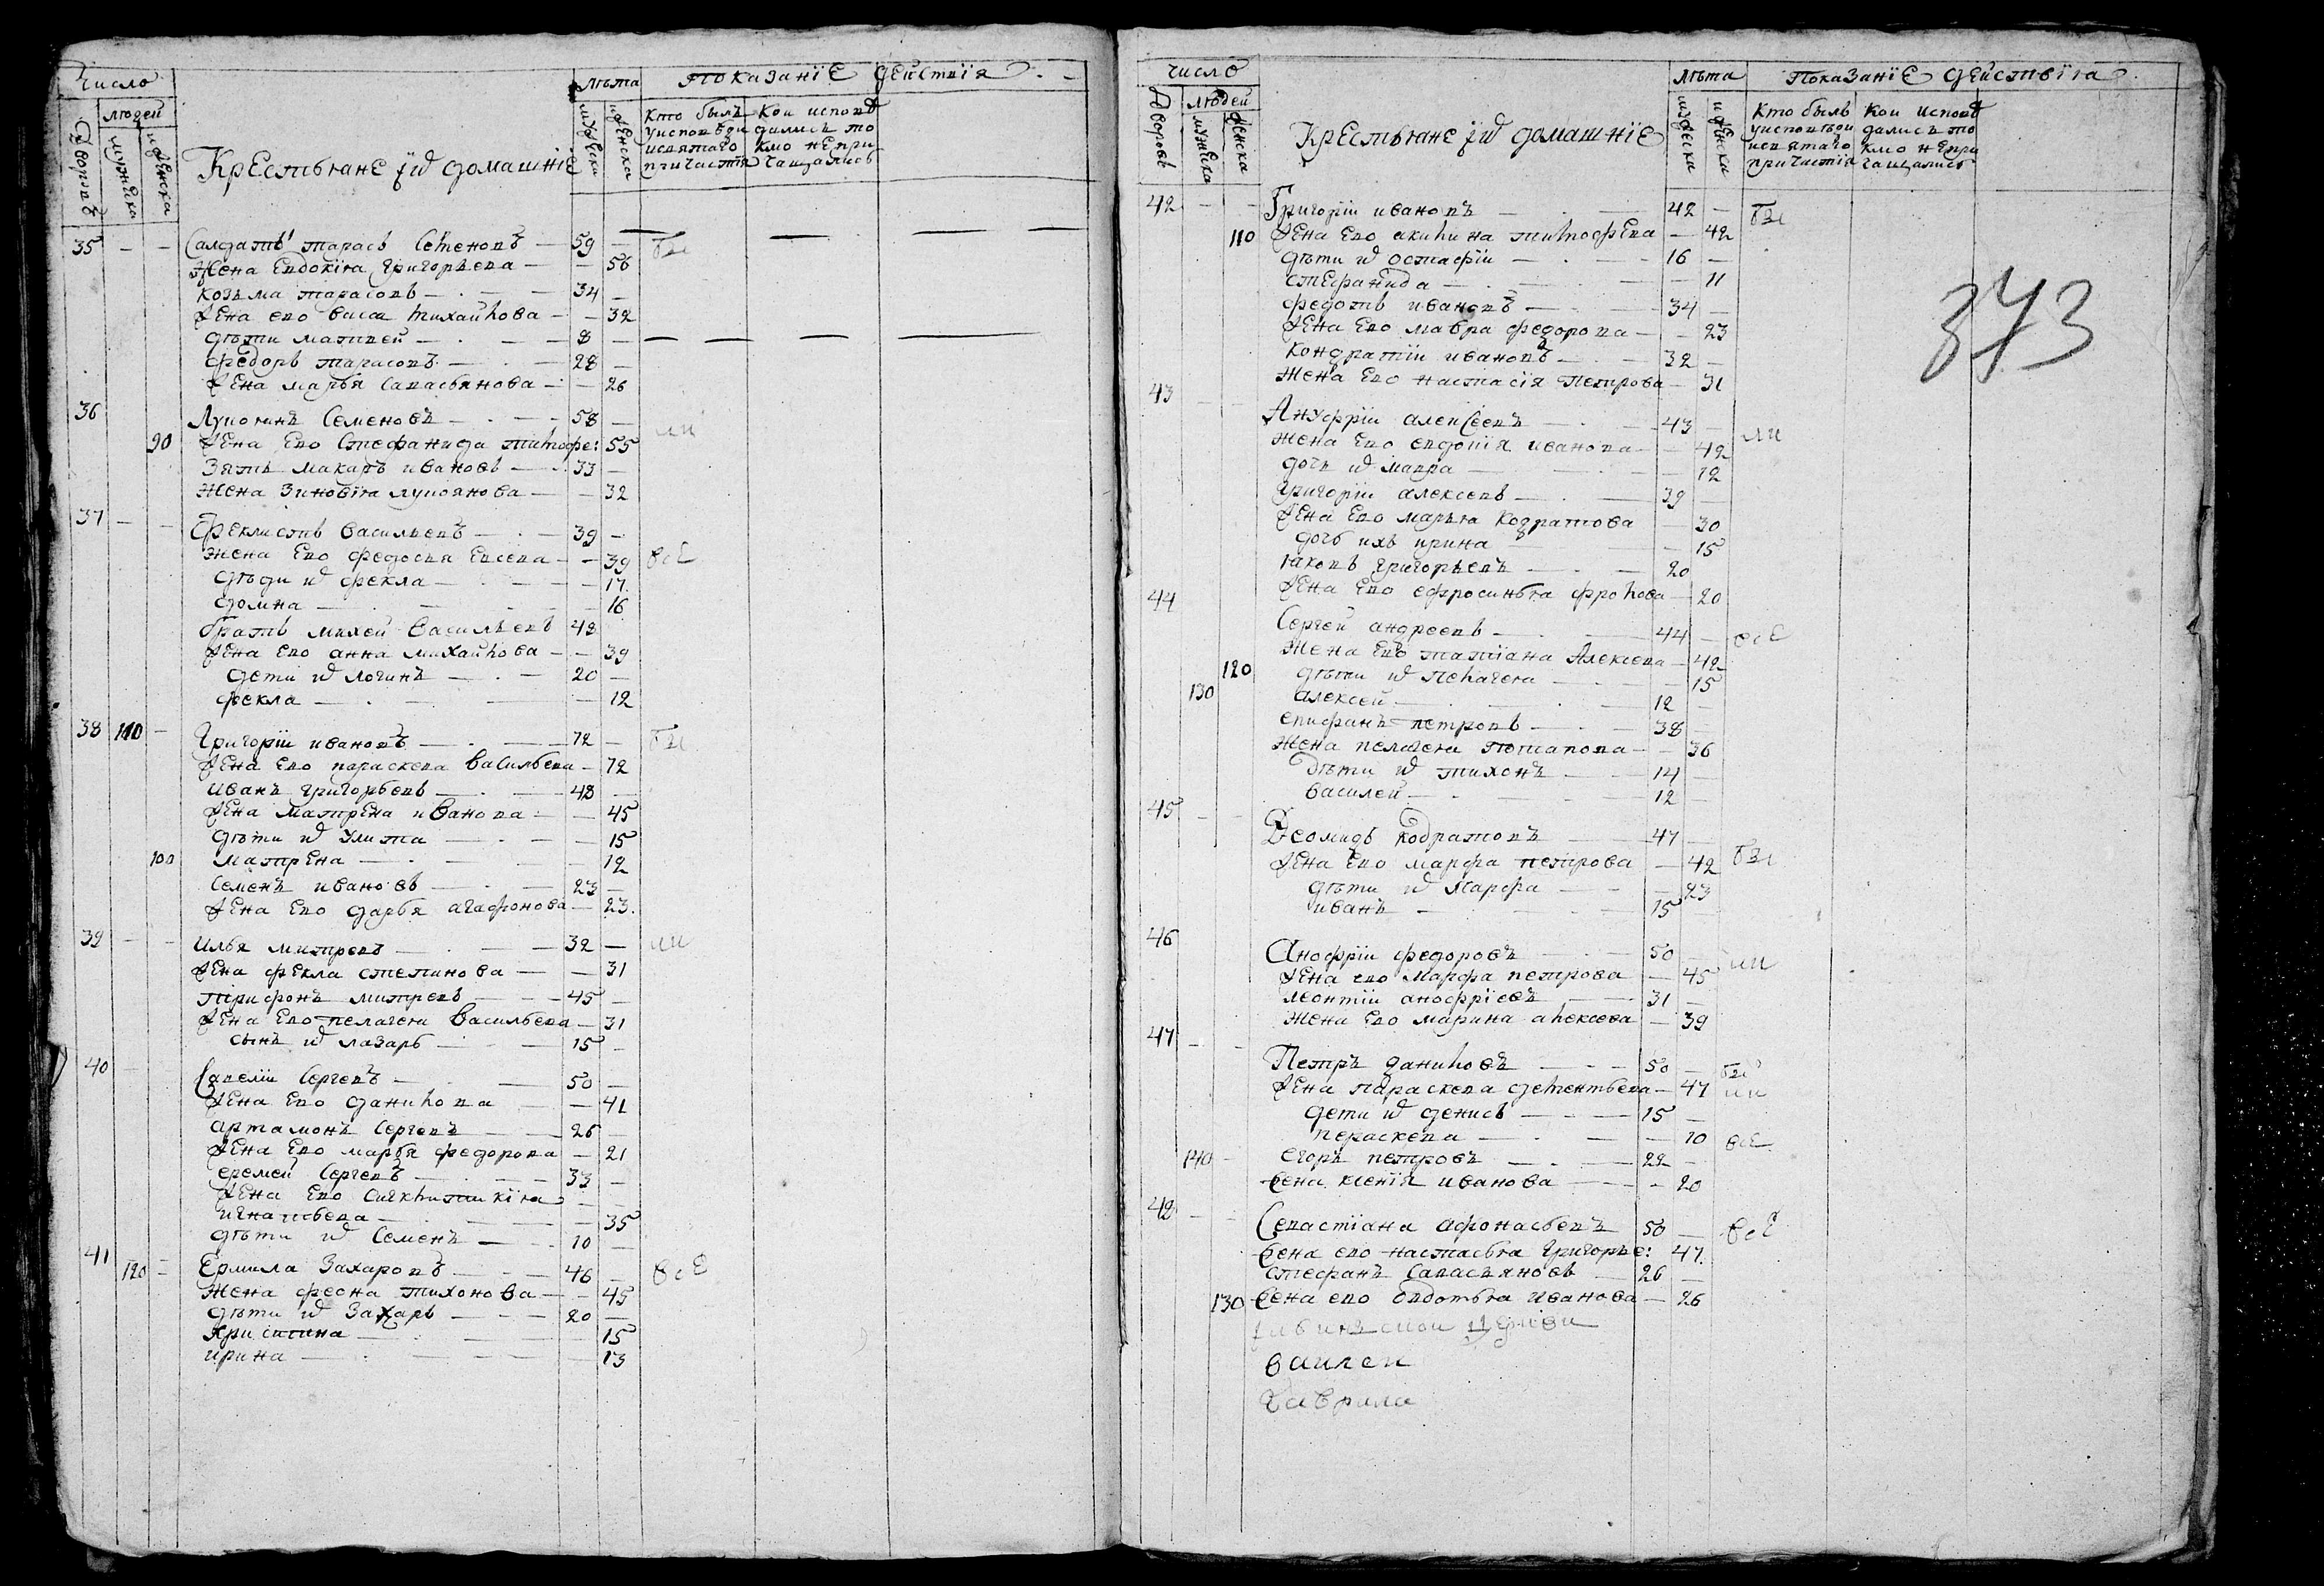 Число
людей
Дворовъ
мужеска
женска
Крестьяне їихъ домашнїе
лѣта
мужеска
женска
Показанїе действїя
Кто былъ
уисповѣди
исвятаго
причастїя
Кои исповѣ
дались то
кмо непри
чащались
35 — — Салдатъ тарасъ Семеновъ — 59 — бы
Жена Евдокїя григорьева — — 56
козьма тарасовъ — 34 —
жена ево васа михайлова — — 32
дѣти матвей — 8 —
федоръ тарасовъ — 28 —
жена марья савасьянова — — 26
36 Лупоянъ Семеновъ — 58 — ли
90 жена Ево Стефанида тимофе: 55
Зять макаръ ивановъ — 33 —
Жена Зиновїя лупоянова — — 32
37 — — Феклистъ васильевъ — 39 —
жена Ево федосья Евсева — — 39 всЕ
дѣти их фекла — 17
домна — 16
братъ михей васильевъ 48
жена Ево анна михайлова — — 39
дети их логинъ — 20 —
фекла — — 12
38 110 — Григорїи ивановъ — 72 — бы
жена Ево параскева васильева — 72
иванъ григорьевъ — 48 —
жена матрена иванова — — 45
дѣти их улита — — 15
100 матрена — — 12
семенъ ивановъ — 23 —
жена Ево дарья агафонова — 23.
39 — — илья митревъ — 32 — ли
жена фекла степанова — — 31
трифонъ митревъ — 45 —
жена Ево пелагея васильева — 31
сынъ их лазарь — 15 —
40 Савелїи Сергевъ — 50 —
жена Ево данилова — — 41
артамонъ Сергевъ — 26 —
жена Ево марья федорова — 21
еремей Сергевъ — 33 —
игнатьева — — 35
дѣти их Семенъ — 10 —
41 120 — Ермила Захаровъ — 46 — всЕ
жена феона тихонова — — 45
дѣти их Захаръ — 20 —
христина — — 15
ирина — — 13
Число
людей
Дворовъ
мужеска
женска
Крестьяне їихъ домашнїе
лѣта
мужеска
женска
Показанїе действїя
Кто былъ
уисповѣди
исвятаго
причастїя
Кои исповѣ
дались то
кмо непри
чащались
373
42 — — Григорїи ивановъ — 42 — бы
110 жена Ево акилина тимофева — 42
дѣти их остафїи — 16 —
стефанида — — 11
федотъ ивановъ — 34 —
жена Ево мавра федорова — — 23
кондратїи ивановъ — 32 —
жена Ево настасїя петрова — 31
43 — — Ануфрїи алексеевъ — 43 — ли
жена Ево евдокїя иванова — — 42
дочь их мавра — — 12
григорїи алексевъ — 39 —
жена Ево марья кодратова — 30
дочь ихъ ирина — 15
яковъ григорьевъ — 20
жена Ево ефросинья фролова — 20
44 Сергей андреевъ — 44 — всЕ
жена Евъ татїана Алексева — 42
120 дѣти их пелагея — — 15
130 алексей — 12 —
епифанъ петровъ — 38 —
жена пелагея потапова — — 36
дѣти их тихонъ — 14 —
василей — 12 —
45 — — Деомидъ кодратовъ — 47 —
жена Ево марфа петрова — 42 бы
дѣти их марфа — — 23
иванъ — 15 —
46 Анофрїи федоровъ — 50 — ли
жена ево марфа петрова — 45
леонтїи анофрїевъ — 31 —
жена Ево марина алексева — 39
47 — — Петръ даниловъ — 50 — бы
жена параскева дементьева — 47 ли
дети их денисъ — 15 —
пераскева — — 10 всЕ
140 — егоръ петровъ — 22 —
жена ксенїя иванова — — 20
48 — — Севастїана афонасьевъ 50 — всЕ
жена ево настасья григорье: 47.
стефанъ савасьяновъ — 26 —
130 жена ево овдотья иванова — 26
гаврила